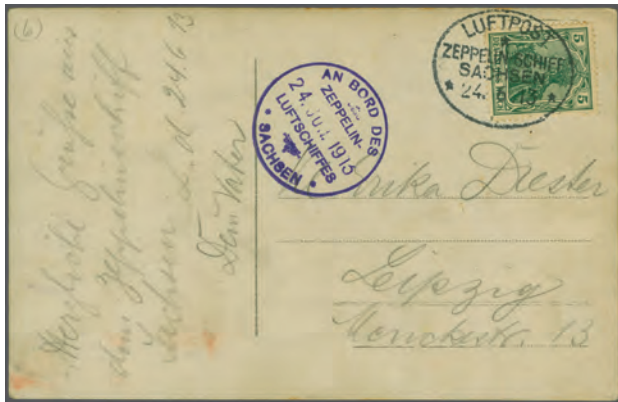 (6)
Herzliche Grüße aus
dem Zeppelinschiff
Sachsen d. 24.6.13
Dein Vater
AN BORD DES
ZEPPELIN-
24. 1913
LUFTSCHIFFES
SACHSEN
LUFTPOST
ZEPPELIN-SCHIFF
SACHSEN
24. 13
5 5
Diester
Leipzig
13